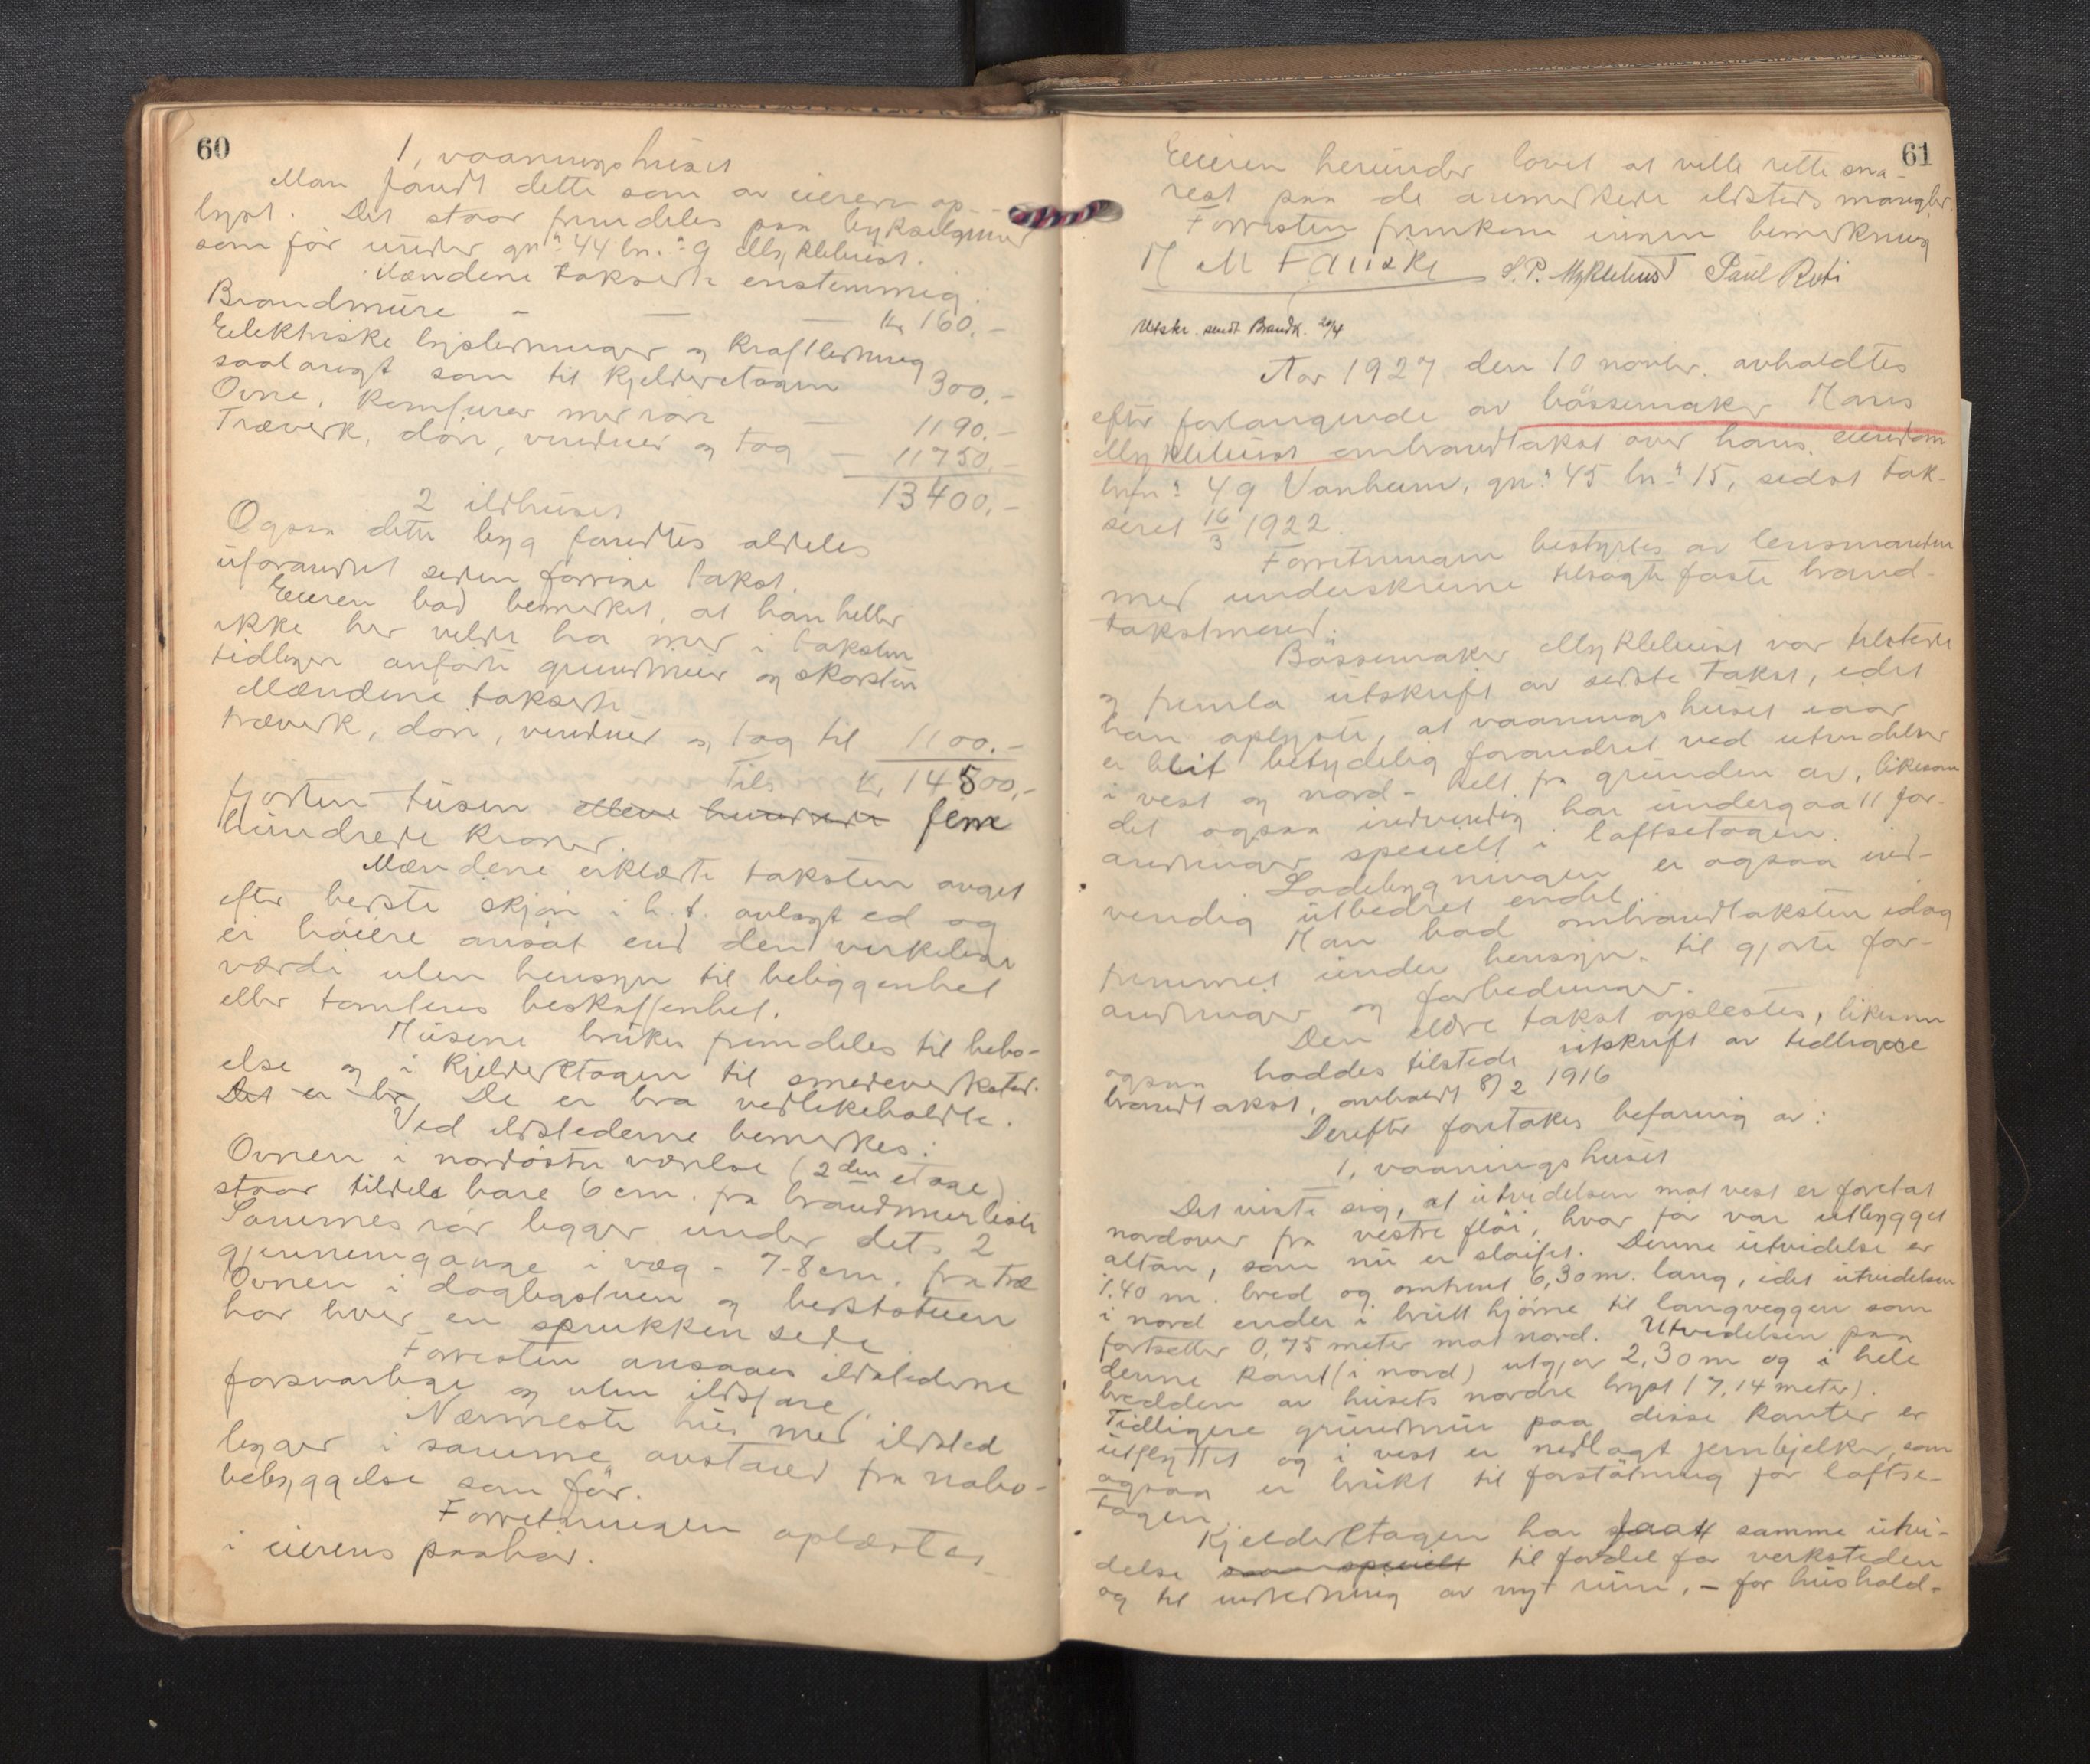 60
1, vaaningshuset
Man fandt dette som av eieren op-
lyst. Det staar fremdeles paa bykselgrund
som før under gn. 44 bn. 9 Myklebust.
Mændene takserte enstemmig:
Brandmure - — — Kr 160.-
Elektriske lysledninger og kraftledning
saalangt som til kjelderetagen 300.-
Ovne, komfurer med rør — 1190.-
Træverk, dør, vinduer og tag — 11750.-
13400.-
2 ildhuset
Ogsaa dette byg fandtes aldeles
uforandret siden forrige takst.
Eieren bad bemerket, at han heller
ikke her vilde ha med i taksten
tidligere anførte grundmur og skorsten
Mændene takserte
træverk, dør, vinduer og tag til 1100.-
Tils. Kr. 14500.-
fjorten tusen elleve hundrede fem
hundrede kroner.
Mændene erklærte taksten avget
efter bedste skjøn i h. t. avlagt ed og
ei høiere ansat end den virkelige
værdi uten hensyn til beliggenhet
eller tomtens beskaffenhet.
Husene brukes fremdeles til bebo-
else og i kjelderetagen til smedeverksted.
Det er bra De er bra vedlikeholdte.
Ved ildstederne bemerkes:
Ovnen i nordøstre værelse (2den etage)
staar tildels bare 6 cm. fra brandmurliste
Sammes rør ligger under dets 2
gjennemgange i væg - 7-8 cm. fra træ
Ovnen i dagligstuen og bedstestuen
har hver en sprukken side
Forresten ansaaes ildstederne
forsvarlige og uten ildsfare.
Nærmeste hus med ildsted
ligger i samme avstand fra nabo-
bebyggelse som før.
Forretningen oplæstes
i eierens paahør.
61
Eieren herunder lovet at ville rette sna-
rest paa de anmerkede ildsteds mangler.
Forresten fremkom ingen bemerkning
H M Fauske S. P. Myklebust Paul Roti
Utskr. sendt Brandk. 20/4
Aar 1927 den 10 novbr. avholdtes
efter forlangende av bøssemaker Hans
Myklebust ombrandtakst over hans eiendom
brfn. 49 Vonheim, gn. 45 bn. 15, sidst tak-
seret 16/3 1922.
Forretningen bestyrtes av lensmanden
med underskrevne tilsagte faste brand-
takstmænd.
Bøssemaker Myklebust var tilstede
og fremla utskrift av sidste takst, idet
han oplyste, at vaaningshuset iaar
er blit betydelig forandret ved utvidelser
i vest og nord - helt fra grunden av, likesom
det ogsaa indvendig har undergaatt for-
andringer specielt i loftsetagen.
Ladebygningen er ogsaa ind-
vendig utbedret endel.
Han bad ombrandtaksten idag
fremmet under hensyn til gjorte for-
andringer og forbedringer.
Den ældre takst oplestes, likesom
ogsaa haddes tilstede utskrift av tidligere
brandtakst, avholdt 8/2 1916
Derefter foretokes befaring av:
1, vaaningshuset
Det viste sig, at utvidelsen mot vest er foretat
nordover fra vestre fløi, hvor før var utbygget
altan, som nu er sløifet. Denne utvidelse er
1.40 m. bred og omtrent 6,30 m. lang, idet utvidelsen
i nord ender i brutt hjørne til langveggen som
fortsetter 0,75 meter mot nord. Utvidelsen paa
denne kant (i nord) utgjør 2,30 m og i hele
bredden av husets nordre bryst (7,14 meter).
Tidligere grundmur paa disse kanter er
utflyttet og i vest er nedlagt jernbjelker, som
ogsaa er brukt til forstøtning for loftse-
tagen.
Kjelderetagen har faatt samme utvi-
delse som specielt til fordel for verksteden
og til indredning av nyt rum, - for hushold-